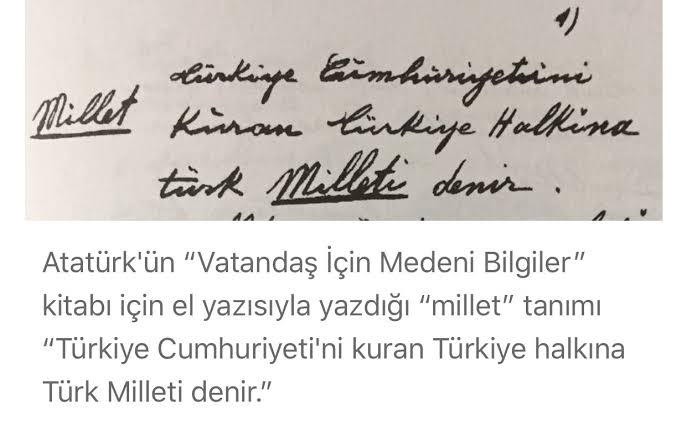 1)
türkiye Cümhüriyetini
Millet Kuran türkiye Halkına
türk Milleti denir.
Atatürk'ün “Vatandaş İçin Medeni Bilgiler”
kitabı için el yazısıyla yazdığı “millet” tanımı
“Türkiye Cumhuriyeti'ni kuran Türkiye halkına
Türk Milleti denir.”